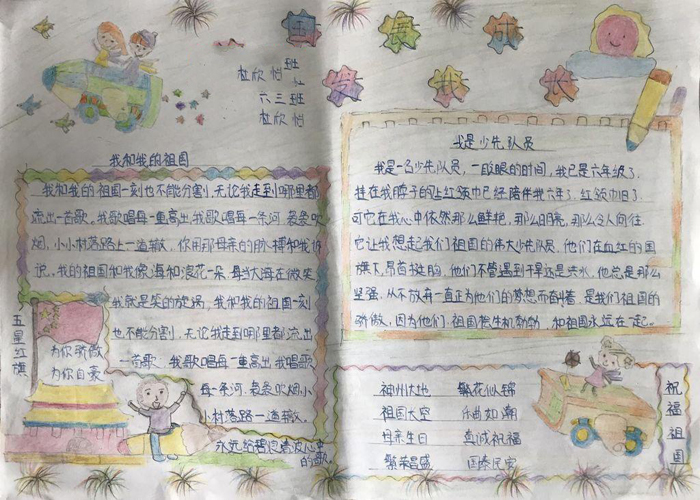 伴
我
成
长
杜欣怡
六三班
杜欣怡
我和我的祖国
我和我的祖国一刻也不能分割,无论我走到哪里都
流出一首歌。我歌唱每一重高山我歌唱每一条河,袅袅吹
烟,小小村落路上一道辙,你用那母亲的脉搏和我诉
说,我的祖国和我像海和浪花一朵,每当大海在微笑
我就是笑的旋涡,我和我的祖国一刻
也不能分割,无论我走到哪里都流出
一首歌,我歌唱每一重高山我唱歌
每一条河,袅袅吹烟,小
小村落路一道辙。
永远给碧浪清波心中
的歌
五星红旗
为你骄傲
为你自豪
我是少先队员
我是一名少先队员,一眨眼的时间,我已是六年级了,
挂在我脖子的让红领巾已经陪伴我六年了,红领巾旧了
可它在我心中依然那么鲜艳,那么明亮,那么令人向往
它让我想起我们祖国的伟大少先队员,他们在血红的国
旗下,昂首挺胸,他们不管遇到干旱还是洪水,他总是那么
坚强,从不放弃一直正为他们的梦想而奋斗着,是我们祖国的
骄傲,因为他们,祖国橪生机勃勃,和祖国永远在一起。
神州大地 繁花似锦
祖国天空 乐曲如潮
母亲生日 真诚祝福
繁荣昌盛 国泰民安
祝福祖国